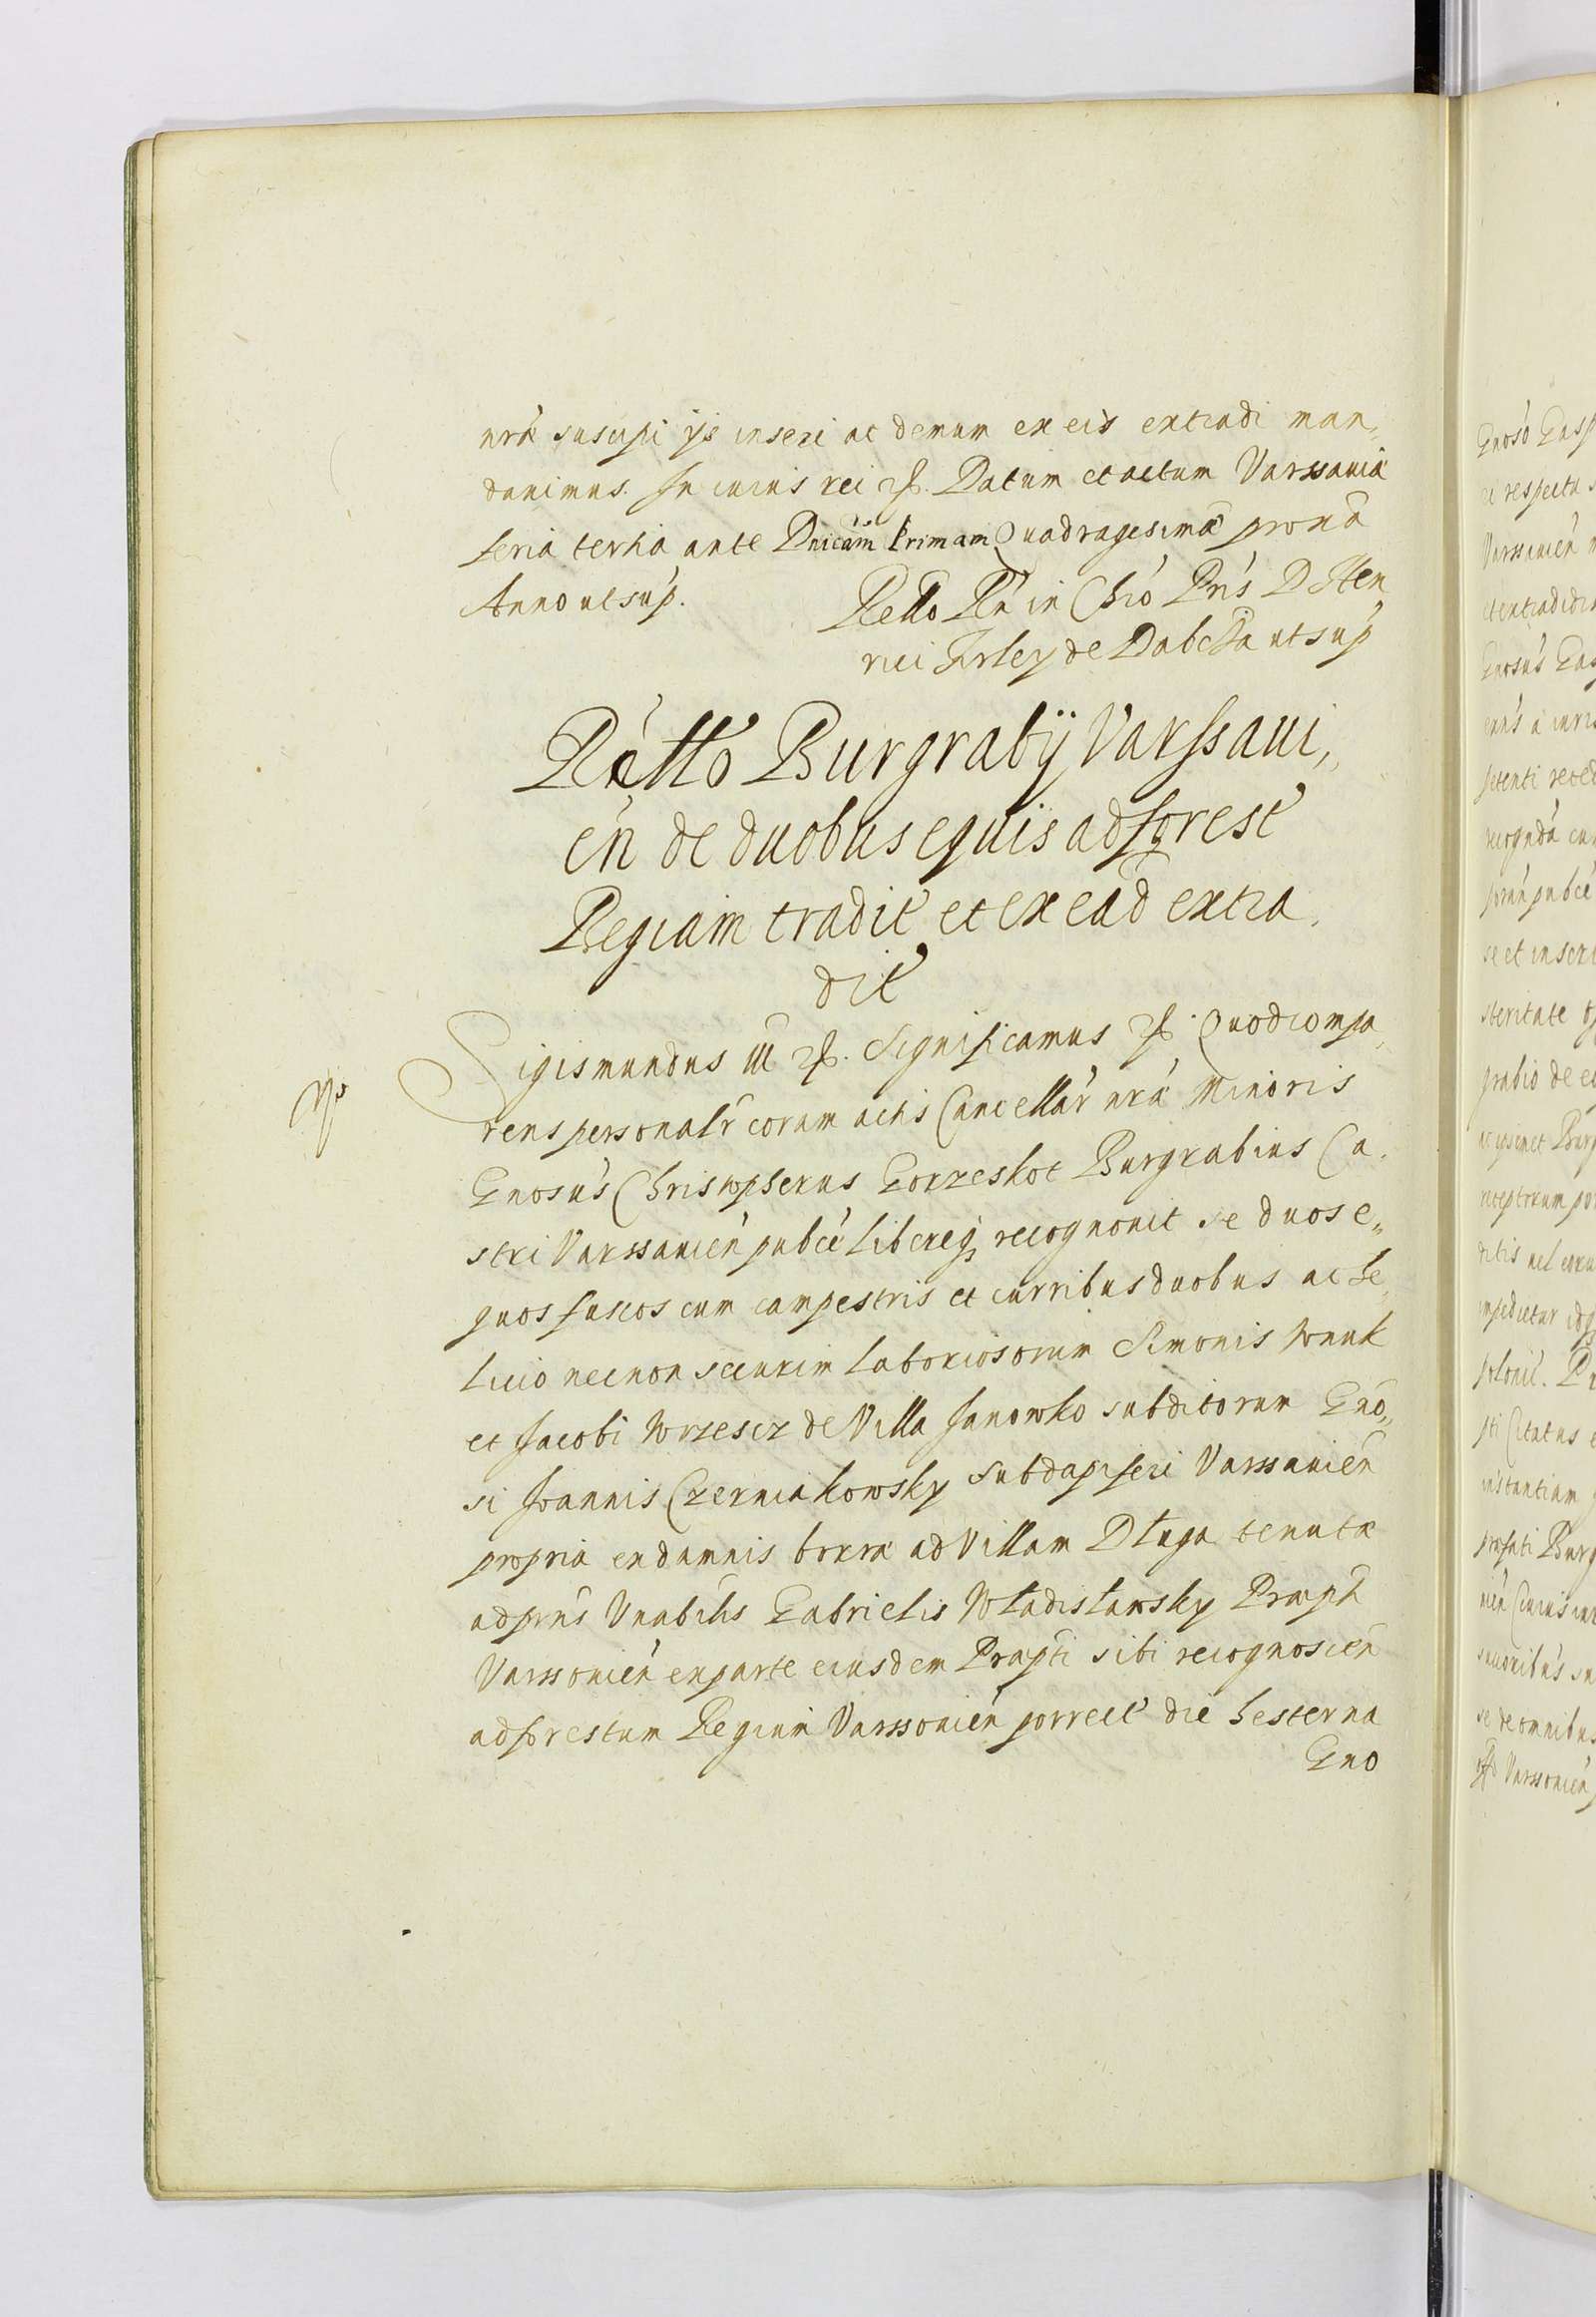 nrã suscipi ijs inseri ac demum ex eis extradi man„
dauimus. In cuius rei &. Datum et actum Varssauiæ
feria tertia ante Dnicam Primam Quadragesimæ proxã
Anno ut sup.
Rello Rń in Chró Pris D Hen
rici Firley de Dabrowica ut sup
Rellő Burgrabij Varssaui„
en̄ de duobus equis ad forest
Regiam tradit et ex ead̄ extra
dit
Sigismundus III &. Significamus &. Quod compa
rens personalr̄ coram actis Cancellar̄ nrã Minoris
Gnosus Christopherus Gorzeskot Burgrabius Ca.
stri Varssauien̄ publcè libereq recognouit se duos e„
quos fuscos cum campestris et curribus duobus ac he
licio necnon securim laboriosorum Simonis Wnuk
et Jacobi Wrzescz de Villa Janowko subditorum Gno„
si Joannis Czerniakowsky Subdapiferi Varssauien̄
propria ex damnis borræ ad Villam Długa tenutæ
ad prns Vnabilis Gabrielis Władisławsky Præpti
Varssouien̄ ex parte eiusdem Præpti sibi recognoscen̄
ad forestum Regium Varssouien̄ porrect die hesterna
Gno
Gnosó Gasp
respectu
Varssauien̄
et extradidi
Gnosus Gas
petenti reced
recognda cu
se et inscri
steritate
grabio de e
ac ipsimet Burg
receptorum
ditis uel
impedietur idq
sti Citatus
instantiam
prefati Burg
se de omnibus
Varssouien̄